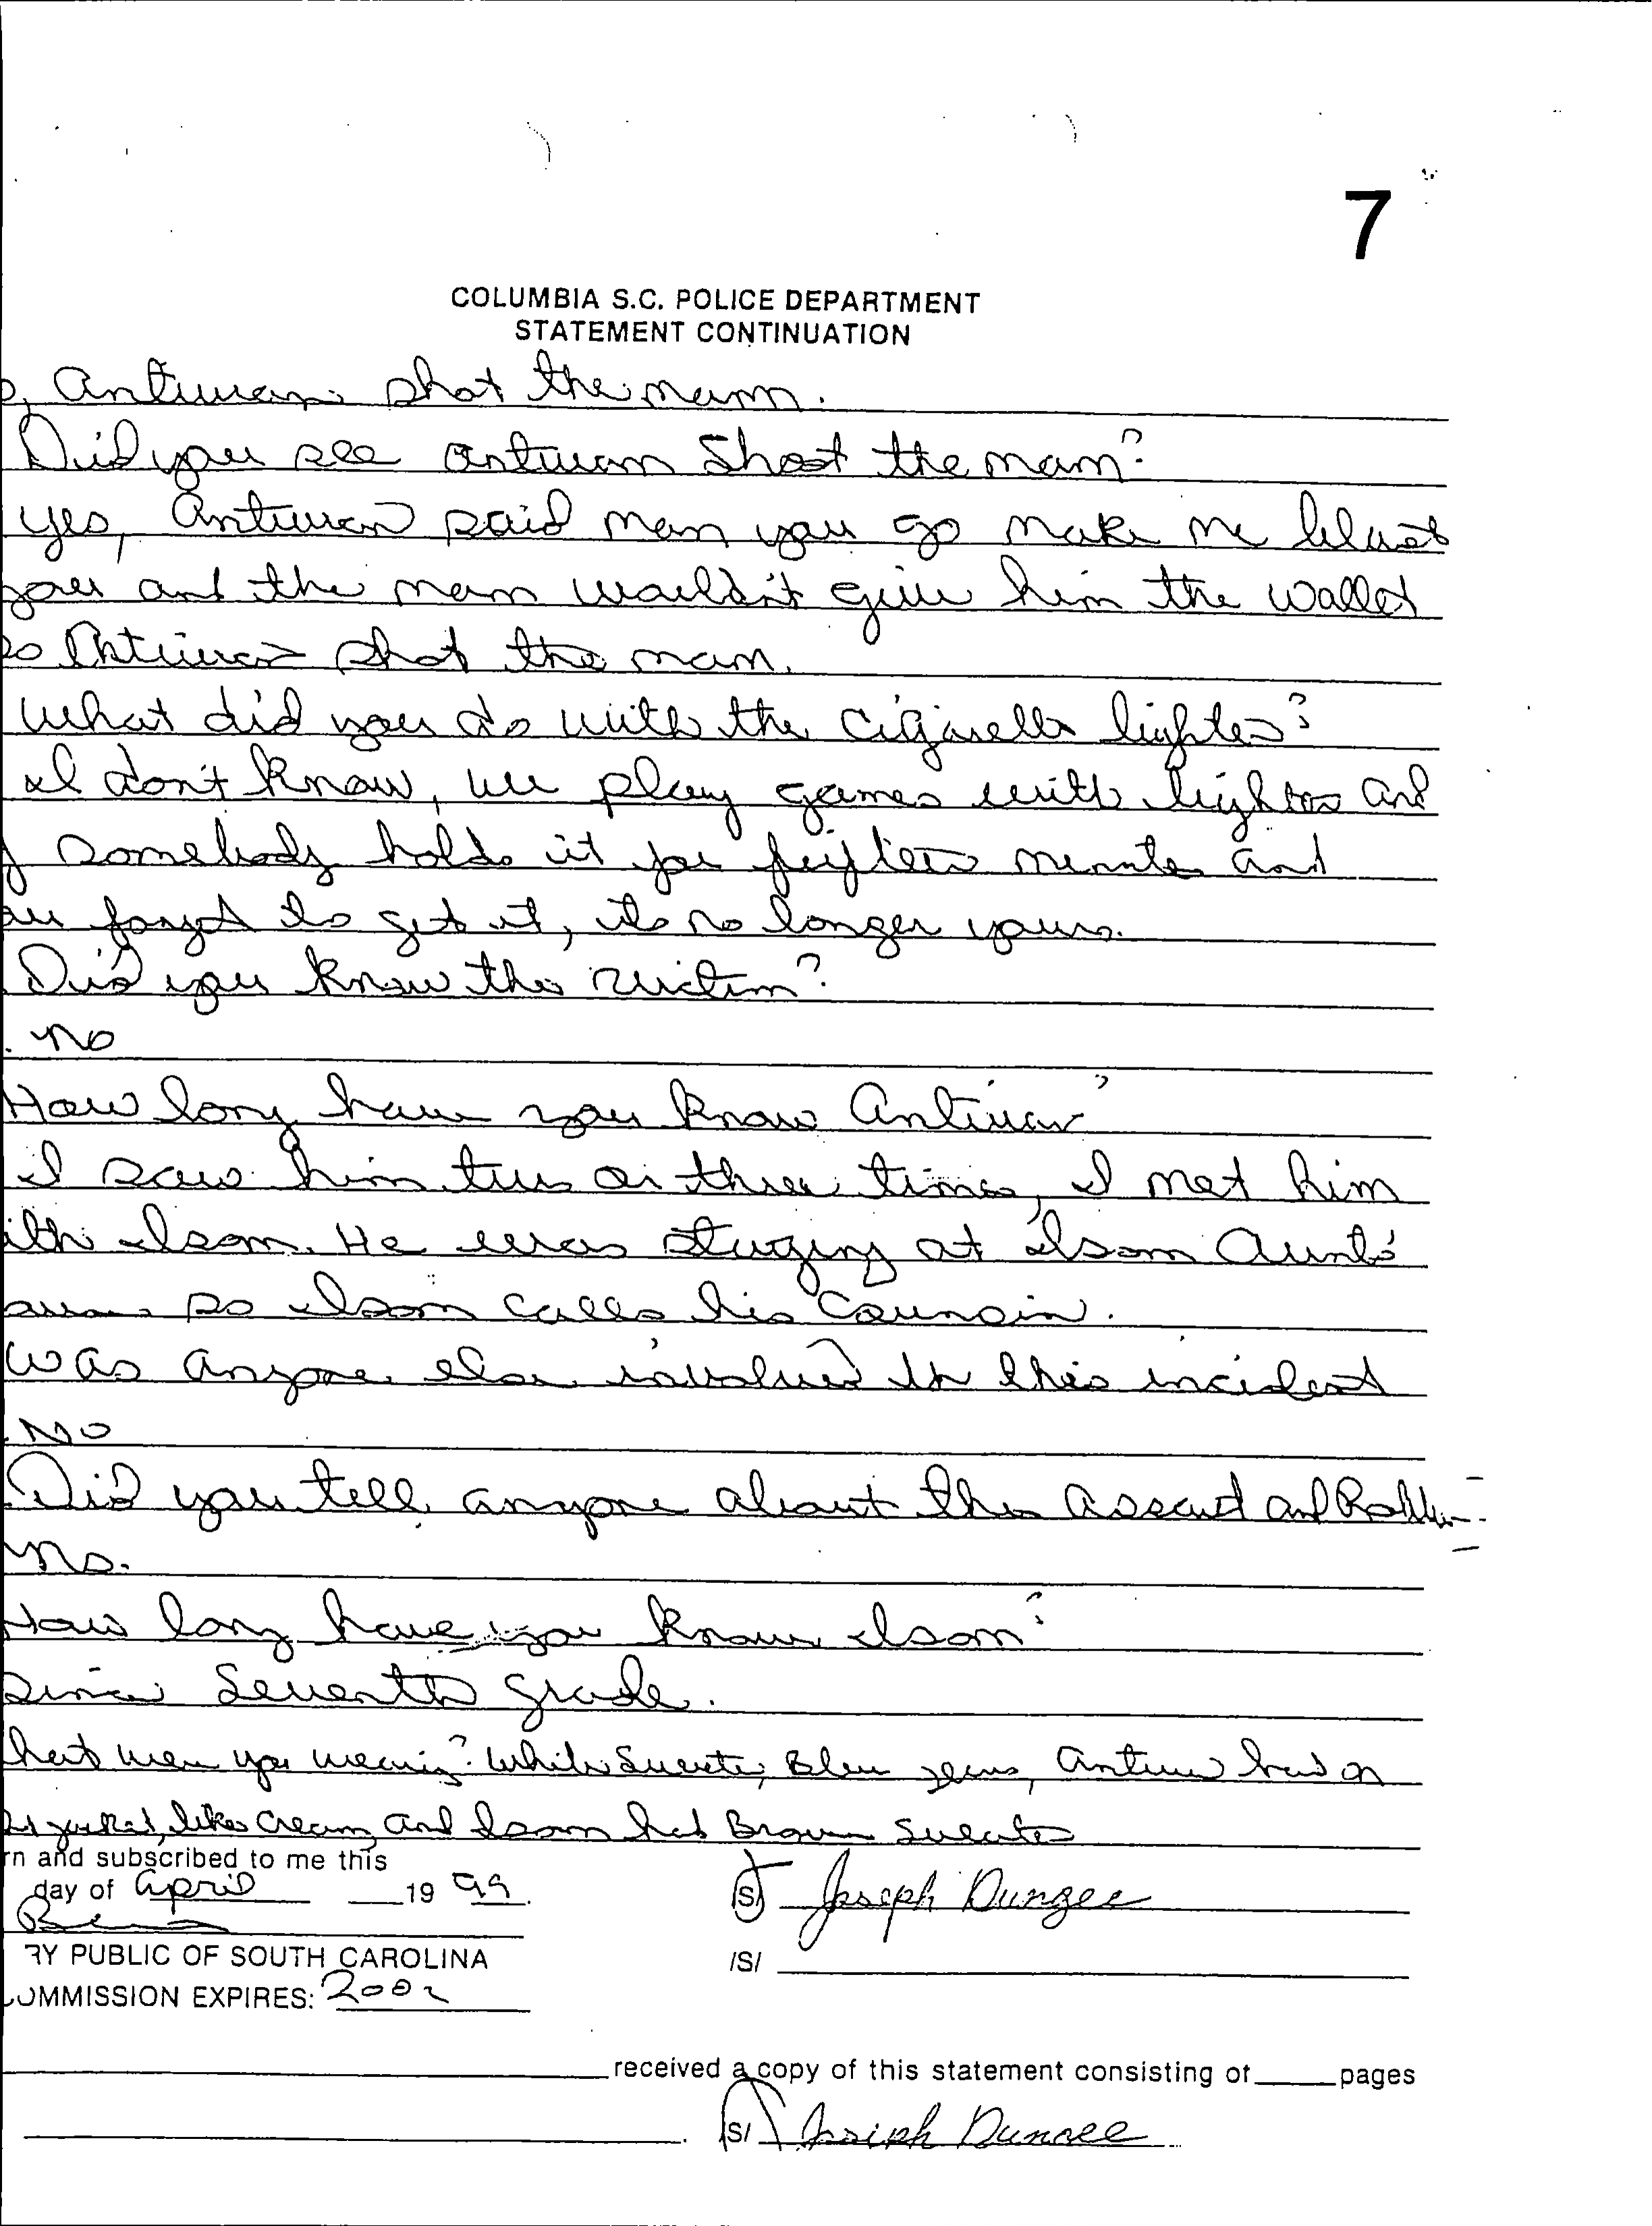 7
COLUMBIA S.C. POLICE DEPARTMENT
STATEMENT CONTINUATION
Antiwan shot the man.
Did you see antiwan Shoot the man?
yes, Antiwan said man you go make me blast
you and the man wouldn't give him the wallet
so Antiwan shot the man.
What did you do with the cigarette lighter?
I don't know, we play games with lighters and
somebody holds it for fifteen minutes and
forget to get it, its no longer yours.
Did you know the victim?
. no
How long have you know Antiwan?
I saw him two or three times, I met him
ith Isom. He was staying at Isom Aunt's
so Isom calls his Cousin.
Was anyone else involved in this incident
. No
Did you tell anyone about the Assault and
no.
How long have you know Isom?
Since Seventh grade.
hat were you wearing? White Sweater, Blue jeans, Antiwan had on
jacket, like Cream, and Isom had Brown Sweater
rn and subscribed to me this
day of April 19 99.
/S/ Joseph Dungee
RY PUBLIC OF SOUTH CAROLINA
/S/
OMMISSION EXPIRES: 2002
received a copy of this statement consisting of pages
/S/ Joseph Dungee